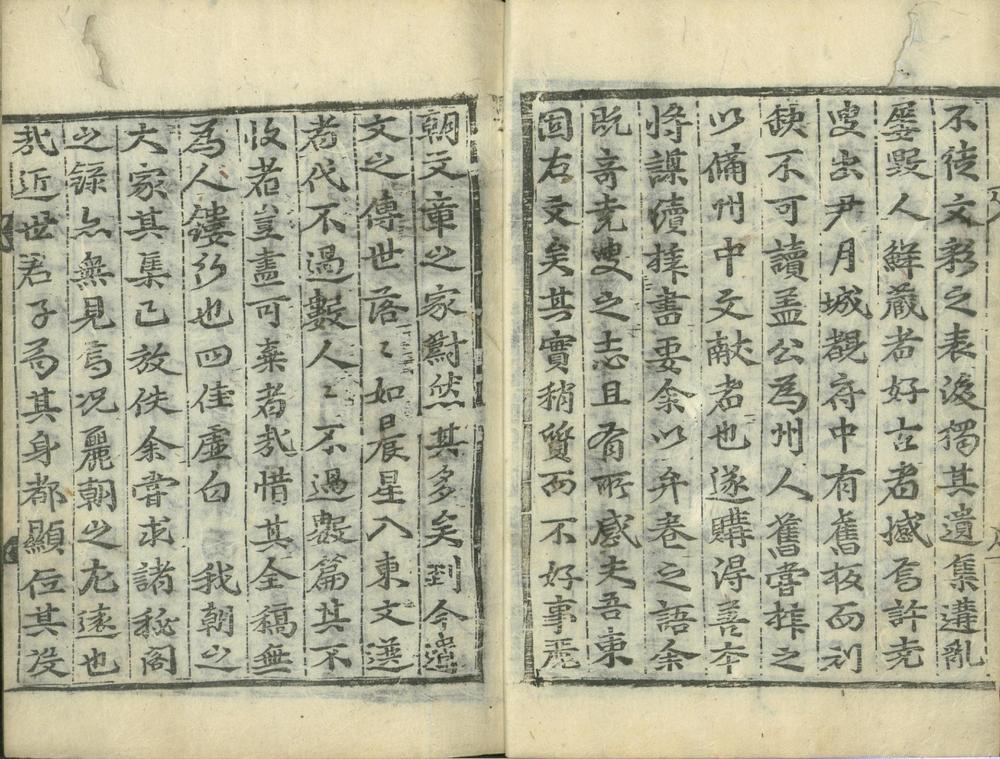 不徒文彩之表淩獨其遺集遘亂
屢毀人鮮蔵者好古者憾焉許尭
叟出尹月城覩府中有舊板而刓
缺不可讀盖公爲州人舊甞梓之
以俻州中文献者也遂購淂善本
将謀續梓書要余以弁巻之語余
旣竒尭叟之志且有所感夫吾東
固右文矣其實稍質而不好事麗
朝文章之家蔚然其多矣到今遺
文之傳世落〻如晨星入東文選
者代不過數人〻不過數篇其不
收者豈盡可棄者㢤惜其全稿無
爲人鏤行也四佳虛白 我朝之
大家其集已放佚余甞求諸秘閣
之錄亦無見焉况麗朝之尤遠也
㢤近世君子爲其身都顯位其沒